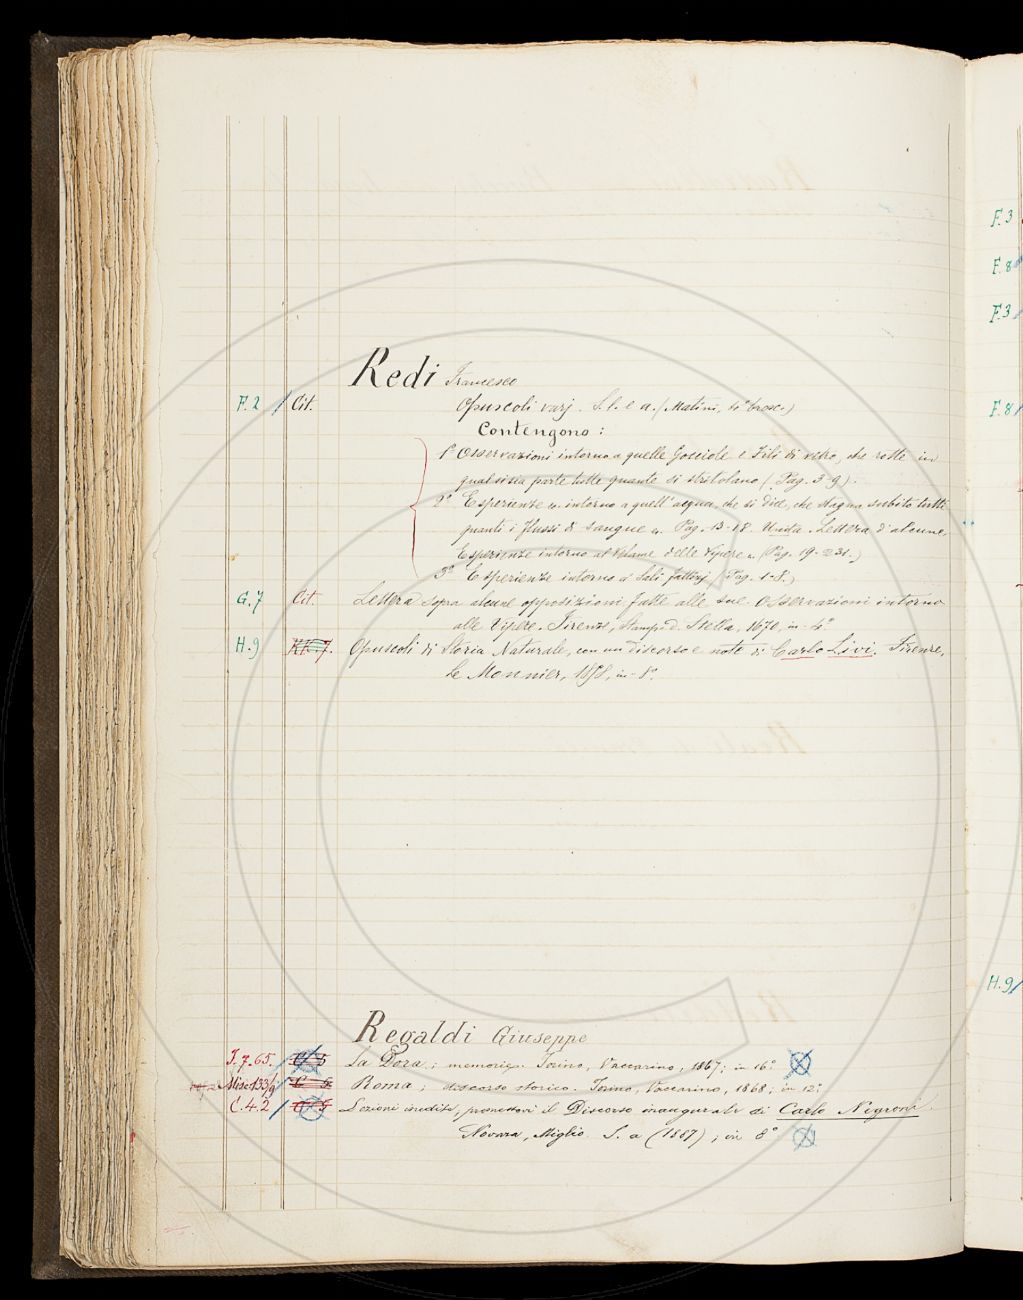 Redi Francesco
F. 2 / Cit. Opuscoli varj. S. l. e a. (Matini, 4° brosc.)
Contengono:
1° Osservazioni intorno a quelle Gocciole e Fili di vetro, che rotte in
qualsisia parte tutte quante si stritolano (Pag. 3-9).
2° Esperienze intorno a quell' acqua, che si dice, che stagna subito tutti
quanti i flussi di sangue Pag. 13-18. Unita Lettera d' alcune
Esperienze intorno al Veleme delle Vipere (Pag. 19-231.)
3° Esperienze intorno a' Sali fattizj (Pag. 1-8.)
G. 7 Cit. Lettera sopra alcune opposizioni fatte alle sue Osservazioni intorno
alle Vipere. Firenze, Stamp. d. Stella, 1670, in-4°
H. 9 KK. 7. Opuscoli di Storia Naturale, con un discorso e note di Carlo Livi. Firenze,
Le Monnier, 1858, in-8°.
Regaldi Giuseppe
I. 7. 65. C. 5 La Dora; memorie. Torino, Vaccarino, 1867; in 16°
Misc. 133/9 C 5 Roma; discorso storico. Torino, Vaccarino, 1868; in 12°
C. 4. 2 C. 5 Lezioni inedite, premessovi il Discorso inaugurale di Carlo Negroni.
Novara, Miglio. S. a (1887); in 8°
F. 3
F. 8
F. 3
F. 8
H. 9